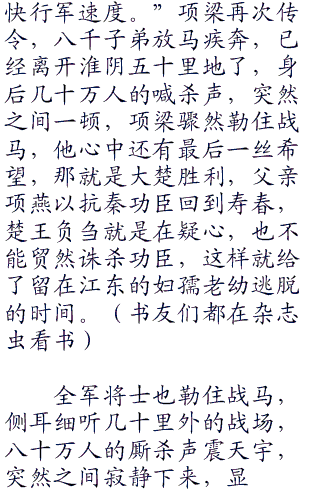 快行军速度。”项梁再次传
令，八千子弟放马疾奔，已
经离开淮阴五十里地了，身
后几十万人的喊杀声，突然
之间一顿，项梁骤然勒住战
马，他心中还有最后一丝希
望，那就是大楚胜利，父亲
项燕以抗秦功臣回到寿春，
楚王负刍就是在疑心，也不
能贸然诛杀功臣，这样就给
了留在江东的妇孺老幼逃脱
的时间。（书友们都在杂志
虫看书）
全军将士也勒住战马，
侧耳细听几十里外的战场，
八十万人的厮杀声震天宇，
突然之间寂静下来，显